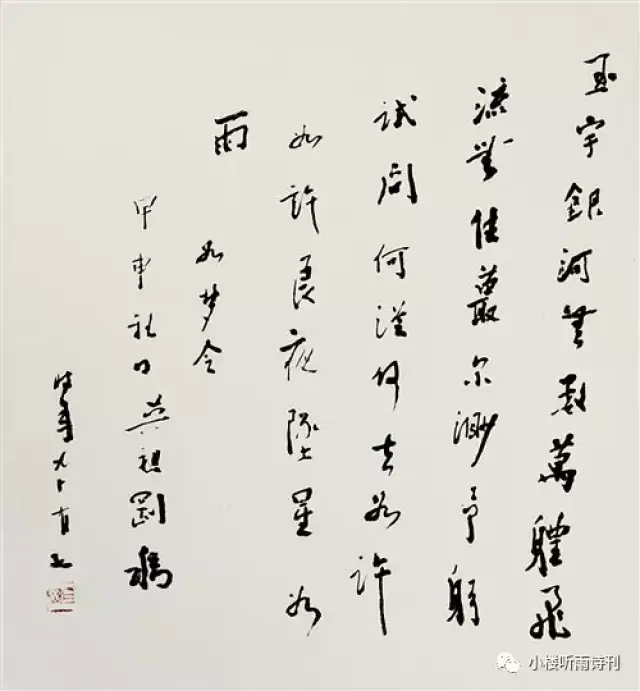 玉宇銀河無數萬體飛
流對住藐尔渺予躬
試問何從何去如許
如許良夜墜星如
雨
如梦令
甲申社日吳祖剛稿
時年九十有
小楼听雨诗刊